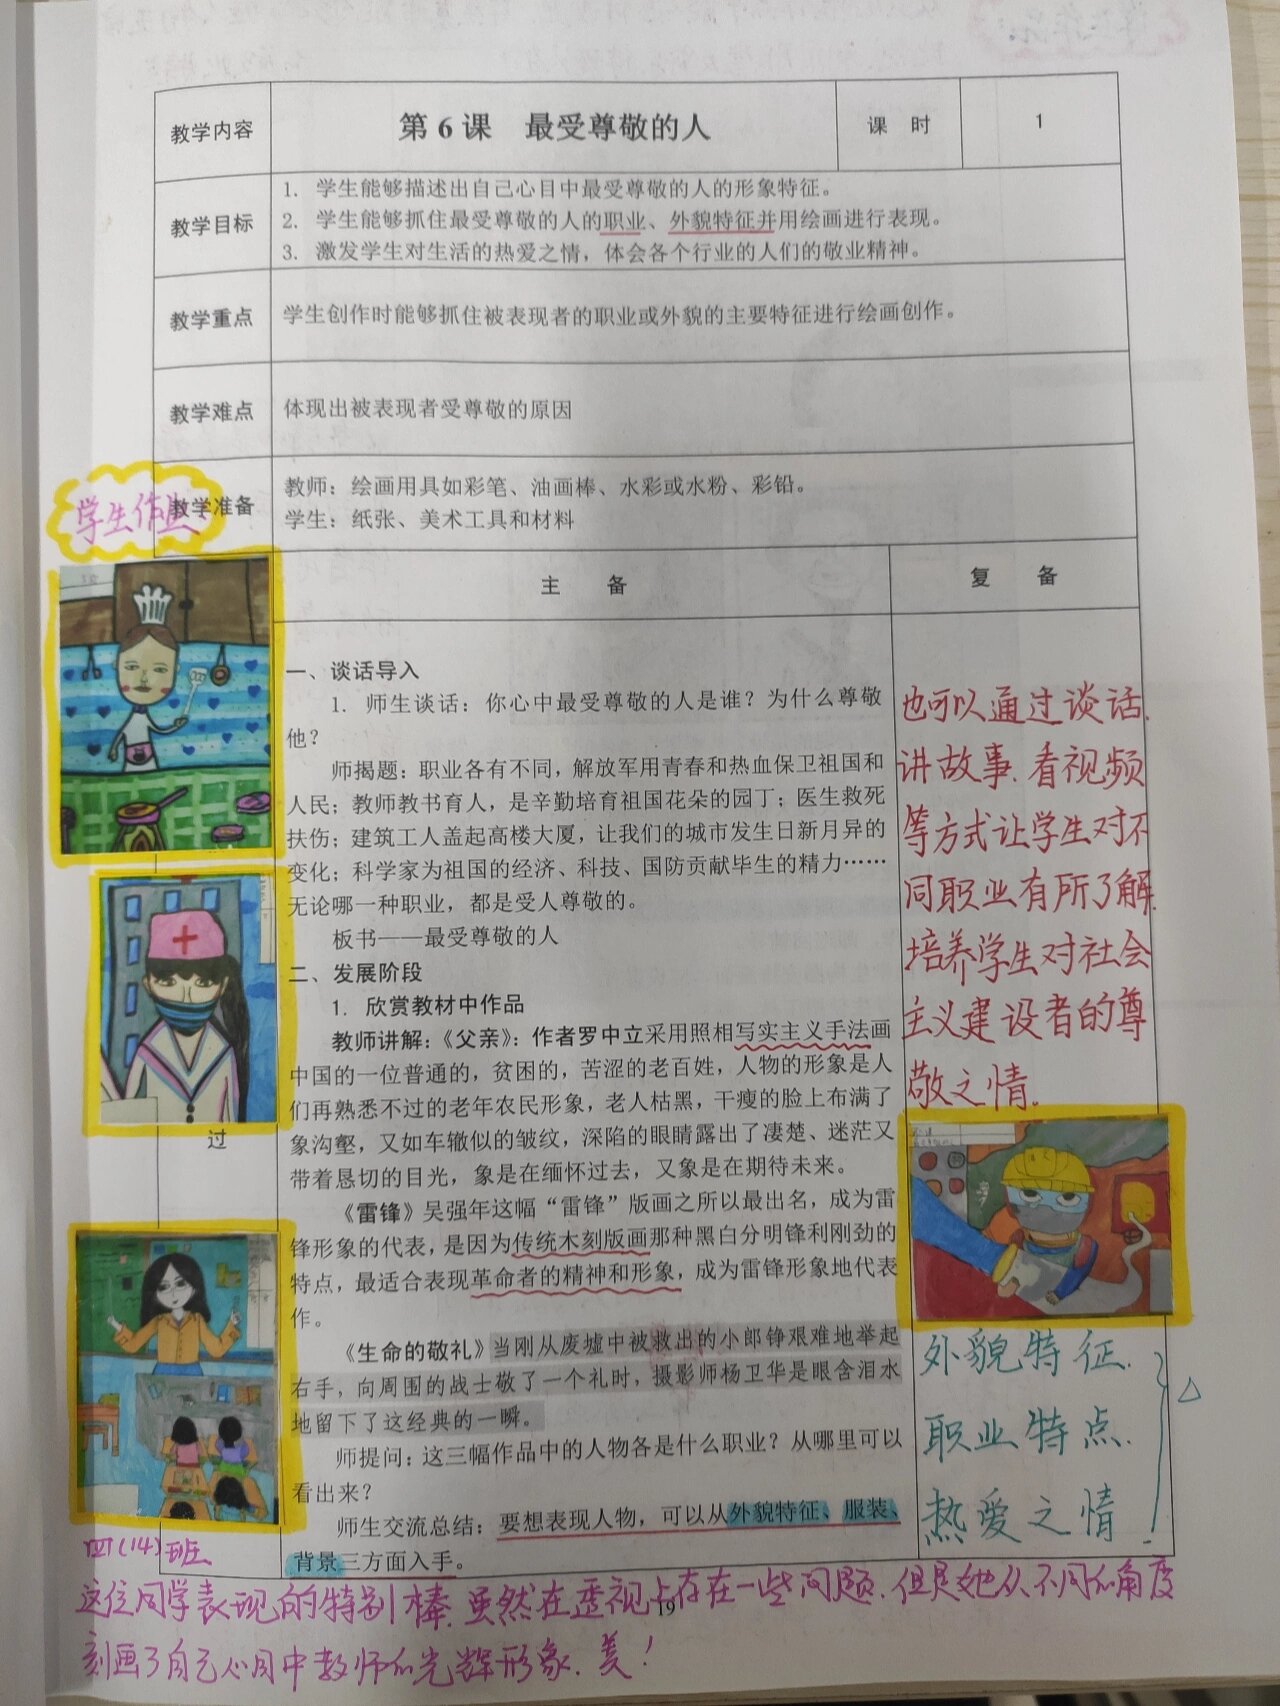 教学内容
第 6 课 最受尊敬的人
课 时
1
教学目标
1. 学生能够描述出自己心目中最受尊敬的人的形象特征。
2. 学生能够抓住最受尊敬的人的职业、外貌特征并用绘画进行表现。
3. 激发学生对生活的热爱之情，体会各个行业的人们的敬业精神。
教学重点
学生创作时能够抓住被表现者的职业或外貌的主要特征进行绘画创作。
教学难点
体现出被表现者受尊敬的原因
教学准备
教师：绘画用具如彩笔、油画棒、水彩或水粉、彩铅。
学生：纸张、美术工具和材料
学生作业
主 备
复 备
一、谈话导入
1. 师生谈话：你心中最受尊敬的人是谁？为什么尊敬
他？
师揭题：职业各有不同，解放军用青春和热血保卫祖国和
人民；教师教书育人，是辛勤培育祖国花朵的园丁；医生救死
扶伤；建筑工人盖起高楼大厦，让我们的城市发生日新月异的
变化；科学家为祖国的经济、科技、国防贡献毕生的精力……
无论哪一种职业，都是受人尊敬的。
板书——最受尊敬的人
二、发展阶段
1. 欣赏教材中作品
教师讲解：《父亲》：作者罗中立采用照相写实主义手法画
中国的一位普通的，贫困的，苦涩的老百姓，人物的形象是人
们再熟悉不过的老年农民形象，老人枯黑，干瘦的脸上布满了
象沟壑，又如车辙似的皱纹，深陷的眼睛露出了凄楚、迷茫又
带着恳切的目光，象是在缅怀过去，又象是在期待未来。
《雷锋》吴强年这幅“雷锋”版画之所以最出名，成为雷
锋形象的代表，是因为传统木刻版画那种黑白分明锋利刚劲的
特点，最适合表现革命者的精神和形象，成为雷锋形象地代表
作。
《生命的敬礼》当刚从废墟中被救出的小郎铮艰难地举起
右手，向周围的战士敬了一个礼时，摄影师杨卫华是眼含泪水
地留下了这经典的一瞬。
师提问：这三幅作品中的人物各是什么职业？从哪里可以
看出来？
师生交流总结：要想表现人物，可以从外貌特征、服装、
背景三方面入手。
过
也可以通过谈话.
讲故事.看视频
等方式让学生对不
同职业有所了解.
培养学生对社会
主义建设者的尊
敬之情.
外貌特征.
职业特点.
热爱之情.
四(14)班
这位同学表现的特别棒.虽然在透视上存在一些问题.但是她从不同的角度
刻画了自己心目中教师的光辉形象.美！
19